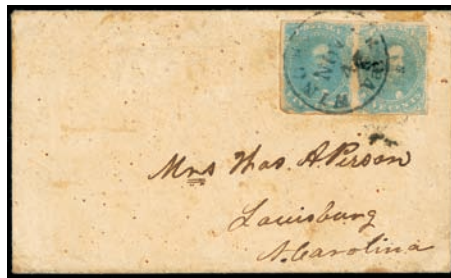 Mrs Thos. A Person
Louisburg
N. Carolina